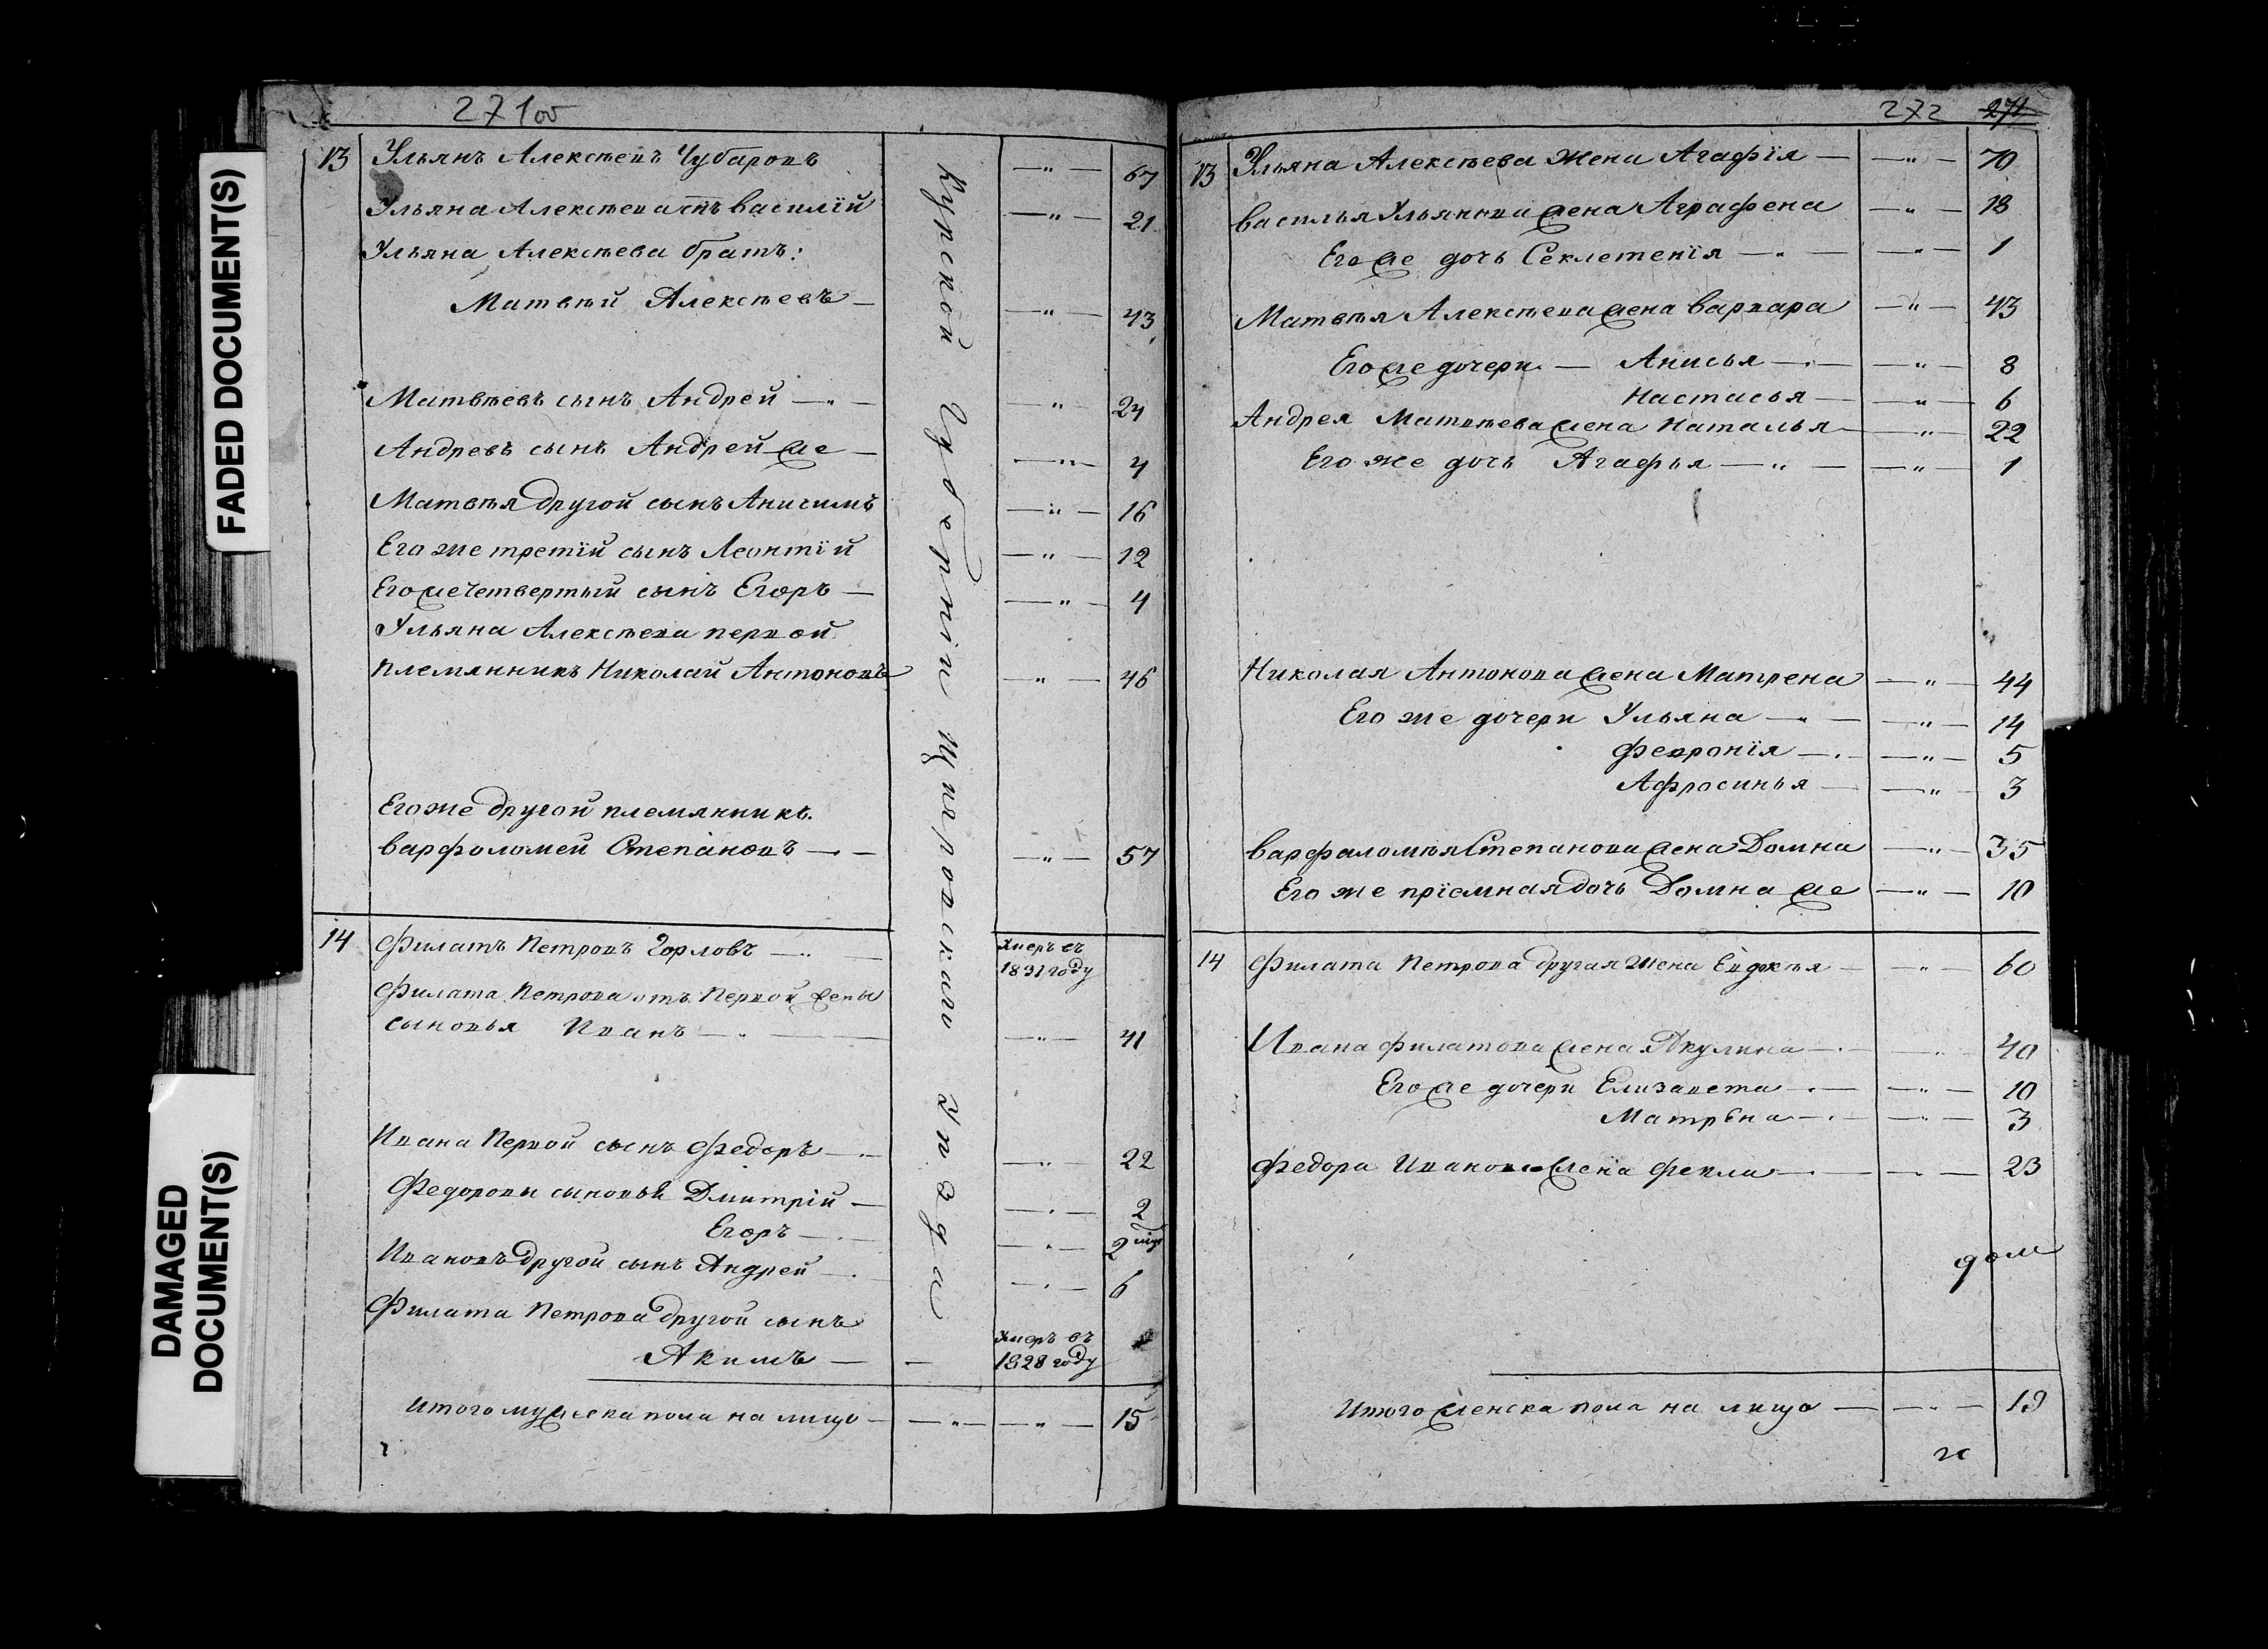 FADED DOCUMENT(S)
DAMAGED
DOCUMENT(S)
271 об
13 Ульянъ Алексѣевъ Чубаровъ — " — 67
Ульяна Алексѣева снъ Василїй — " — 21
Ульяна Алексѣева братъ:
Матвѣй Алексѣевъ — — " — 43
Матвѣевъ сынъ Андрей — " — — " — 24
Андреевъ сынъ Андрей же — — " — 4
Матвѣя другой сынъ Анисимъ — " — 16
Его же третїй сынъ Леонтїй — " — 12
Его же четвертый сынъ Егоръ — — " — 4
Ульяна Алексѣева первой
племянникъ Николай Антоновъ — " — 46
Его же другой племянникъ
Варфоломей Степановъ — — " — 57
14 Филатъ Петровъ Горловъ — умеръ въ
1831 году
Филата Петрова отъ первой жены
сыновья Иванъ — — " — 41
Ивана первой сынъ Федоръ — — " — 22
Федоровы сыновья Дмитрій — — " — 2
Егоръ — — " — 2
Ивановъ другой сынъ Андрей — — " — 6
Филата Петрова другой сынъ
Акимъ — — умеръ въ
1828 году
Итого мужеска пола на лицо — — " — — " — 15
Курской Губерніи Щигровскаго Уѣзда
272 271
13 Ульяна Алексѣева жена Агафїя — — " — 70
Василья Ульянова жена Аграфена — " — 18
Его же дочь Секлетенїя — " — — " — 1
Матвѣя Алексѣева жена Варвара — " — 43
Его же дочери — Анисья — — " — 8
Настасья — — " — 6
Андрея Матвѣева жена Наталья — " — 22
Его же дочь Агафья — " — — " — 1
Николая Антонова жена Матрена — " — 44
Его же дочери Ульяна — — " — 14
Февронїя — — " — 5
Афросинья — — " — 3
Варфаломѣя Степанова жена Домна — " — 35
Его же прїемная дочь Домна же — " — 10
14 Филата Петрова другая жена Евдокѣя — " — 60
Ивана Филатова жена Акулина — — " — 40
Его же дочери Елизавета — — " — 10
Матрена — — " — 3
Федора Иванова жена Фекла — — " — 23
Итого женска пола на лицо — — " — 19